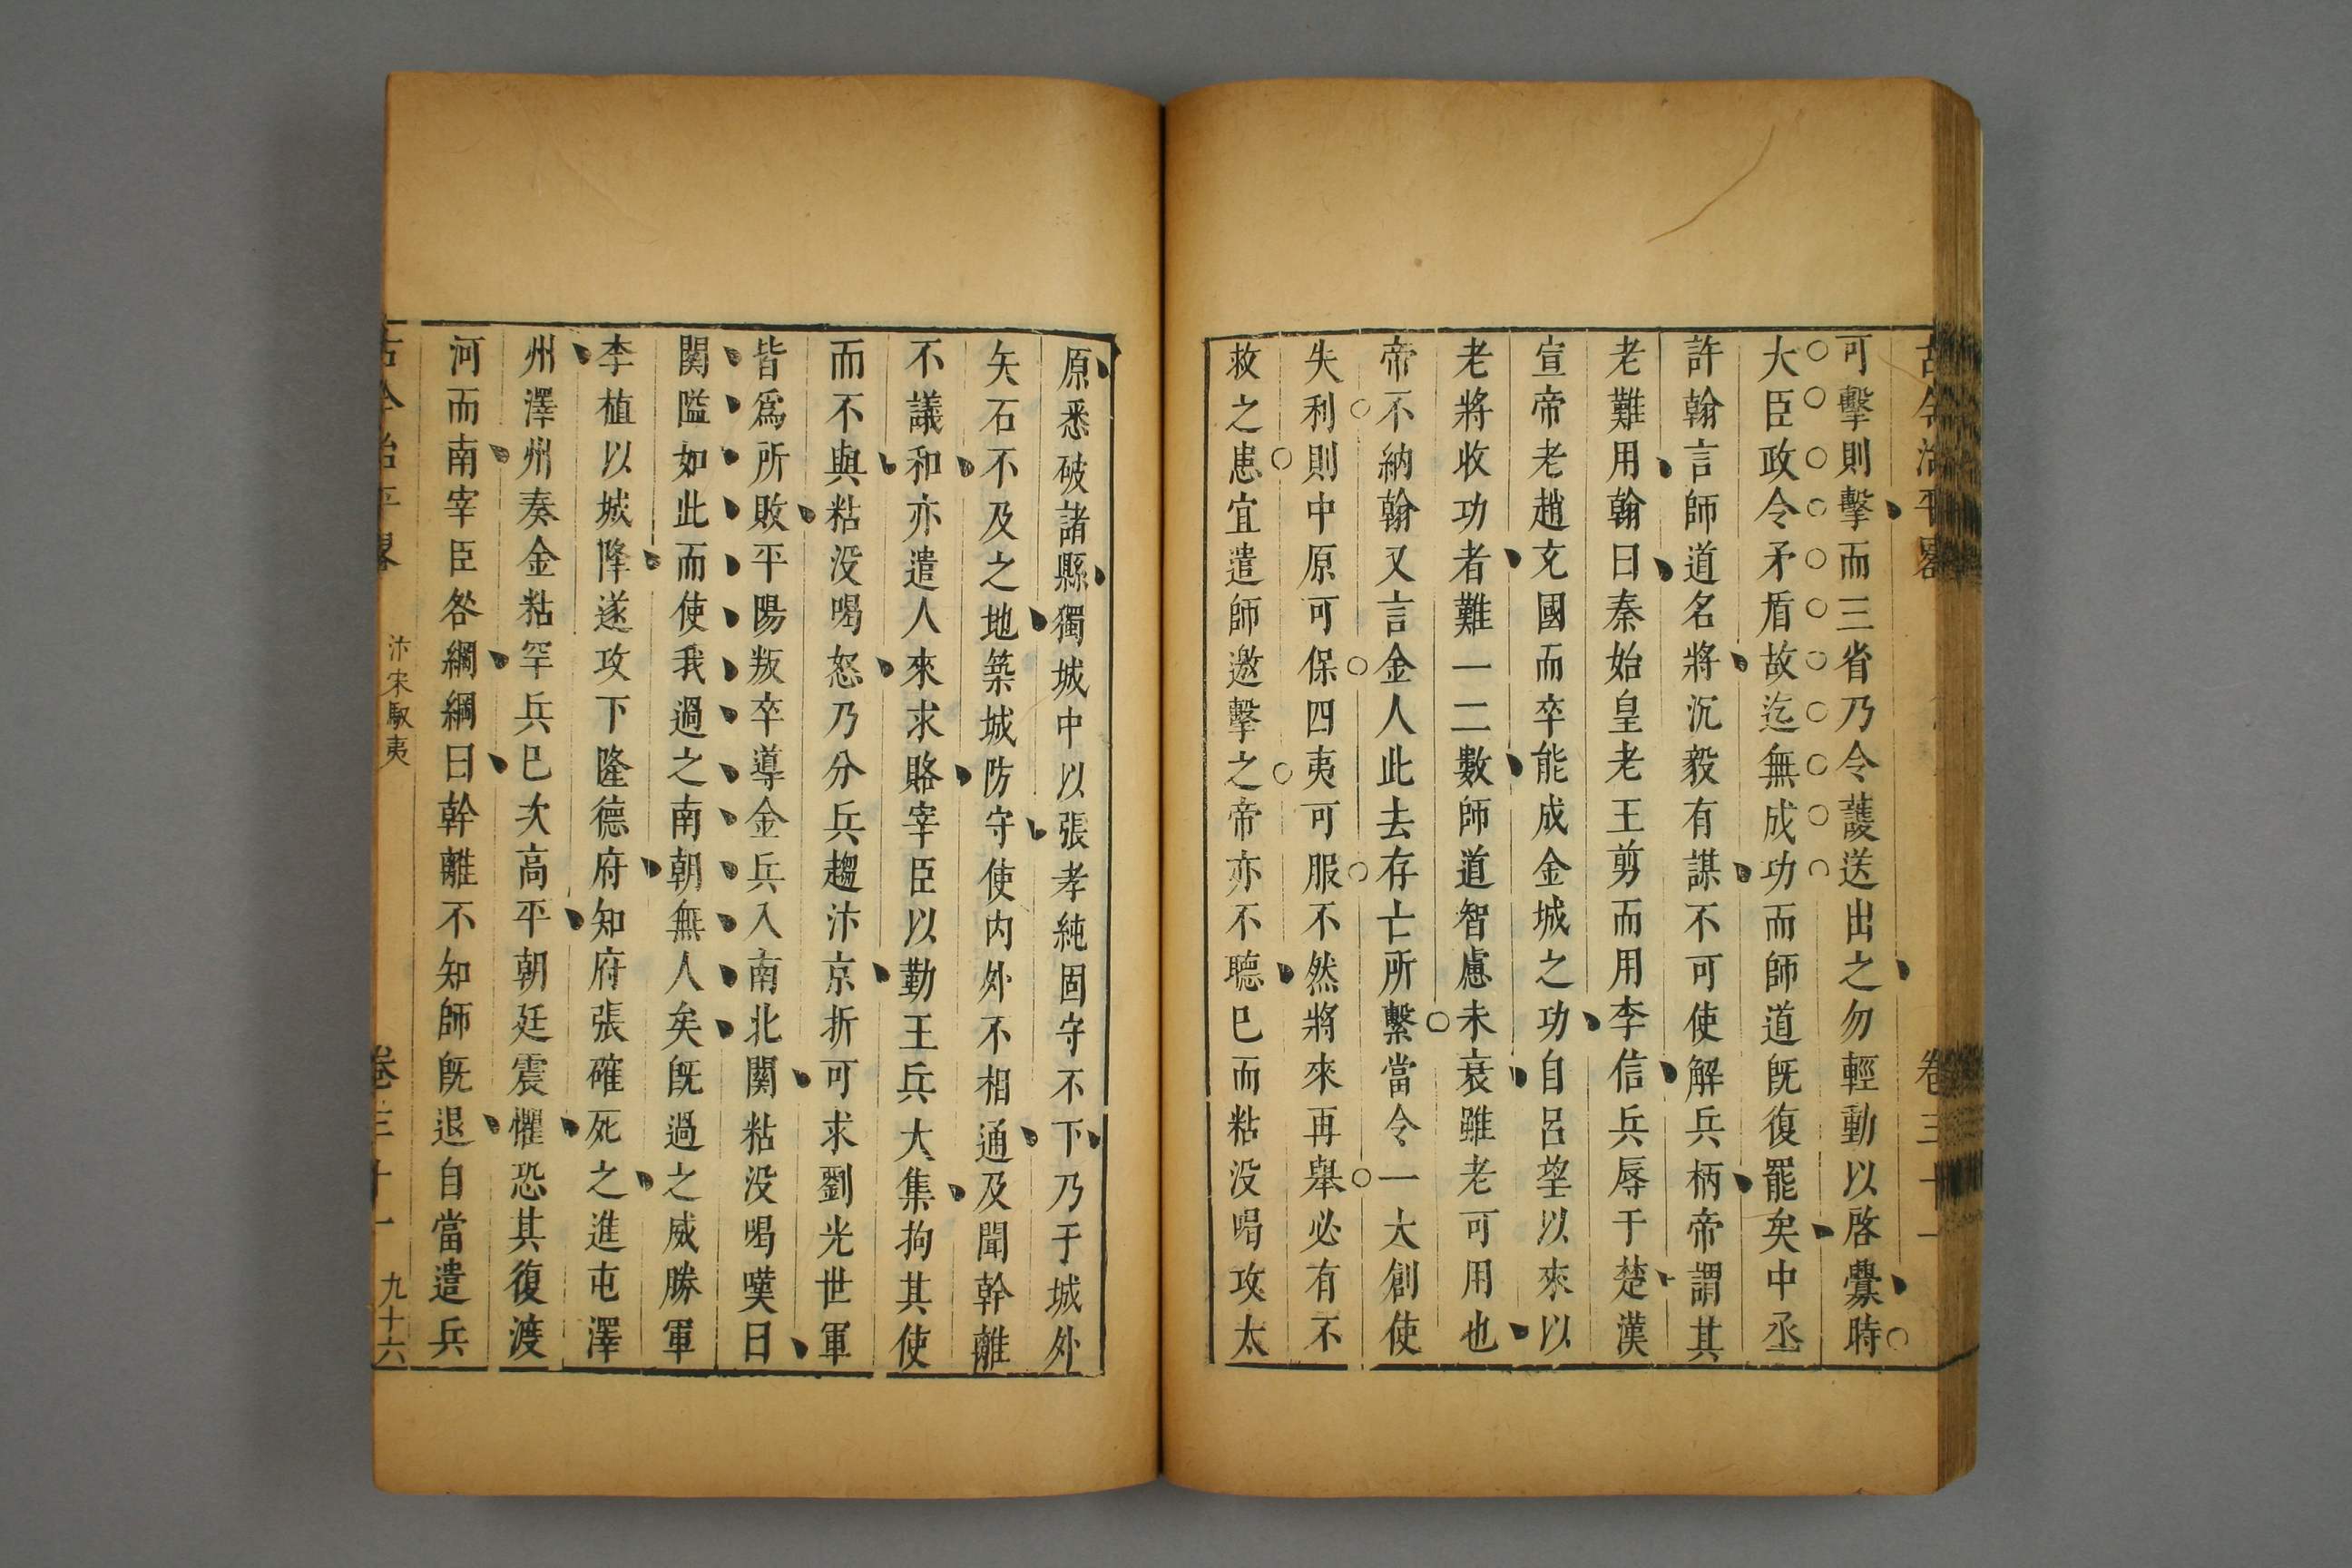 古今治平畧 卷三十一
可擊則擊而三省乃令護送出之勿輕動以啓釁時
大臣政令矛盾故迄無成功而師道旣復罷矣中丞
許翰言師道名將沉毅有謀不可使解兵柄帝謂其
老難用翰曰秦始皇老王剪而用李信兵辱于楚漢
宣帝老趙充國而卒能成金城之功自呂望以來以
老將收功者難一二數師道智慮未衰雖老可用也
帝不納翰又言金人此去存亡所繫當令一大創使
失利則中原可保四夷可服不然將來再舉必有不
救之患宜遣師邀擊之帝亦不聽巳而粘没喝攻太
原悉破諸縣獨城中以張孝純固守不下乃于城外
矢石不及之地築城防守使内外不相通及聞幹離
不議和亦遣人來求賂宰臣以勤王兵大集拘其使
而不與粘没喝怒乃分兵趨汴京折可求劉光世軍
皆爲所敗平陽叛卒導金兵入南北關粘没喝嘆曰
関隘如此而使我過之南朝無人矣旣過之威勝軍
李植以城降遂攻下隆德府知府張確死之進屯澤
州澤州奏金粘罕兵巳次高平朝廷震懼恐其復渡
河而南宰臣咎綱綱曰幹離不知師旣退自當遣兵
古今治平畧 汴宋馭夷 卷三十一 九十六